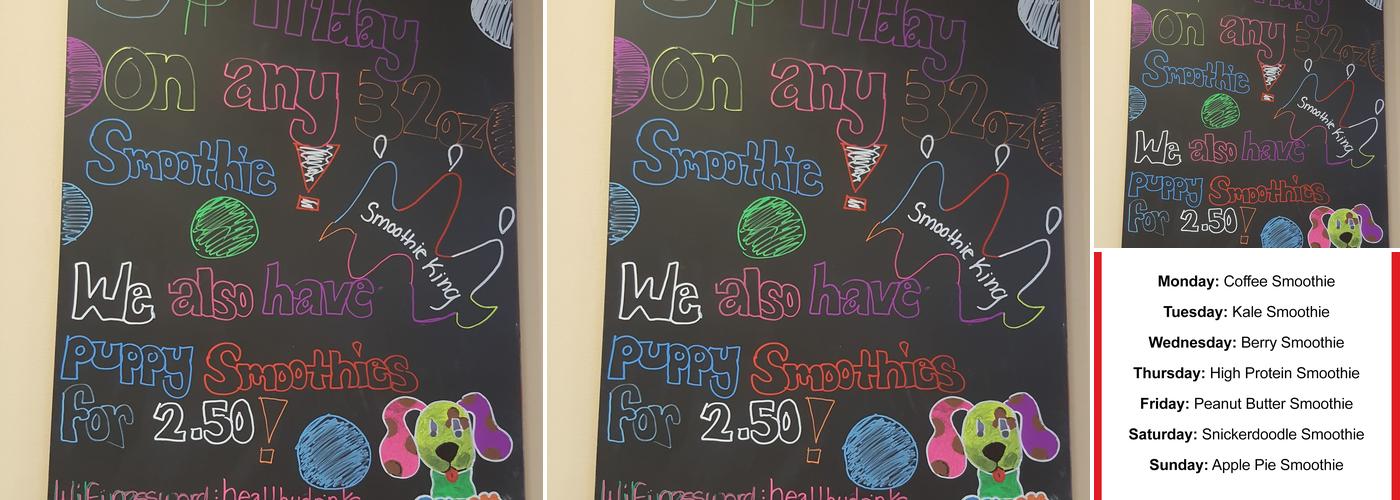 Friday
on any 32oz
Smoothie!
Smoothie King
We also have
puppy Smoothies
for 2.50!
Friday
on any 32oz
Smoothie!
Smoothie King
We also have
puppy Smoothies
for 2.50!
on any 32oz
Smoothie!
Smoothie King
We also have
puppy Smoothies
for 2.50!
Monday: Coffee Smoothie
Tuesday: Kale Smoothie
Wednesday: Berry Smoothie
Thursday: High Protein Smoothie
Friday: Peanut Butter Smoothie
Saturday: Snickerdoodle Smoothie
Sunday: Apple Pie Smoothie